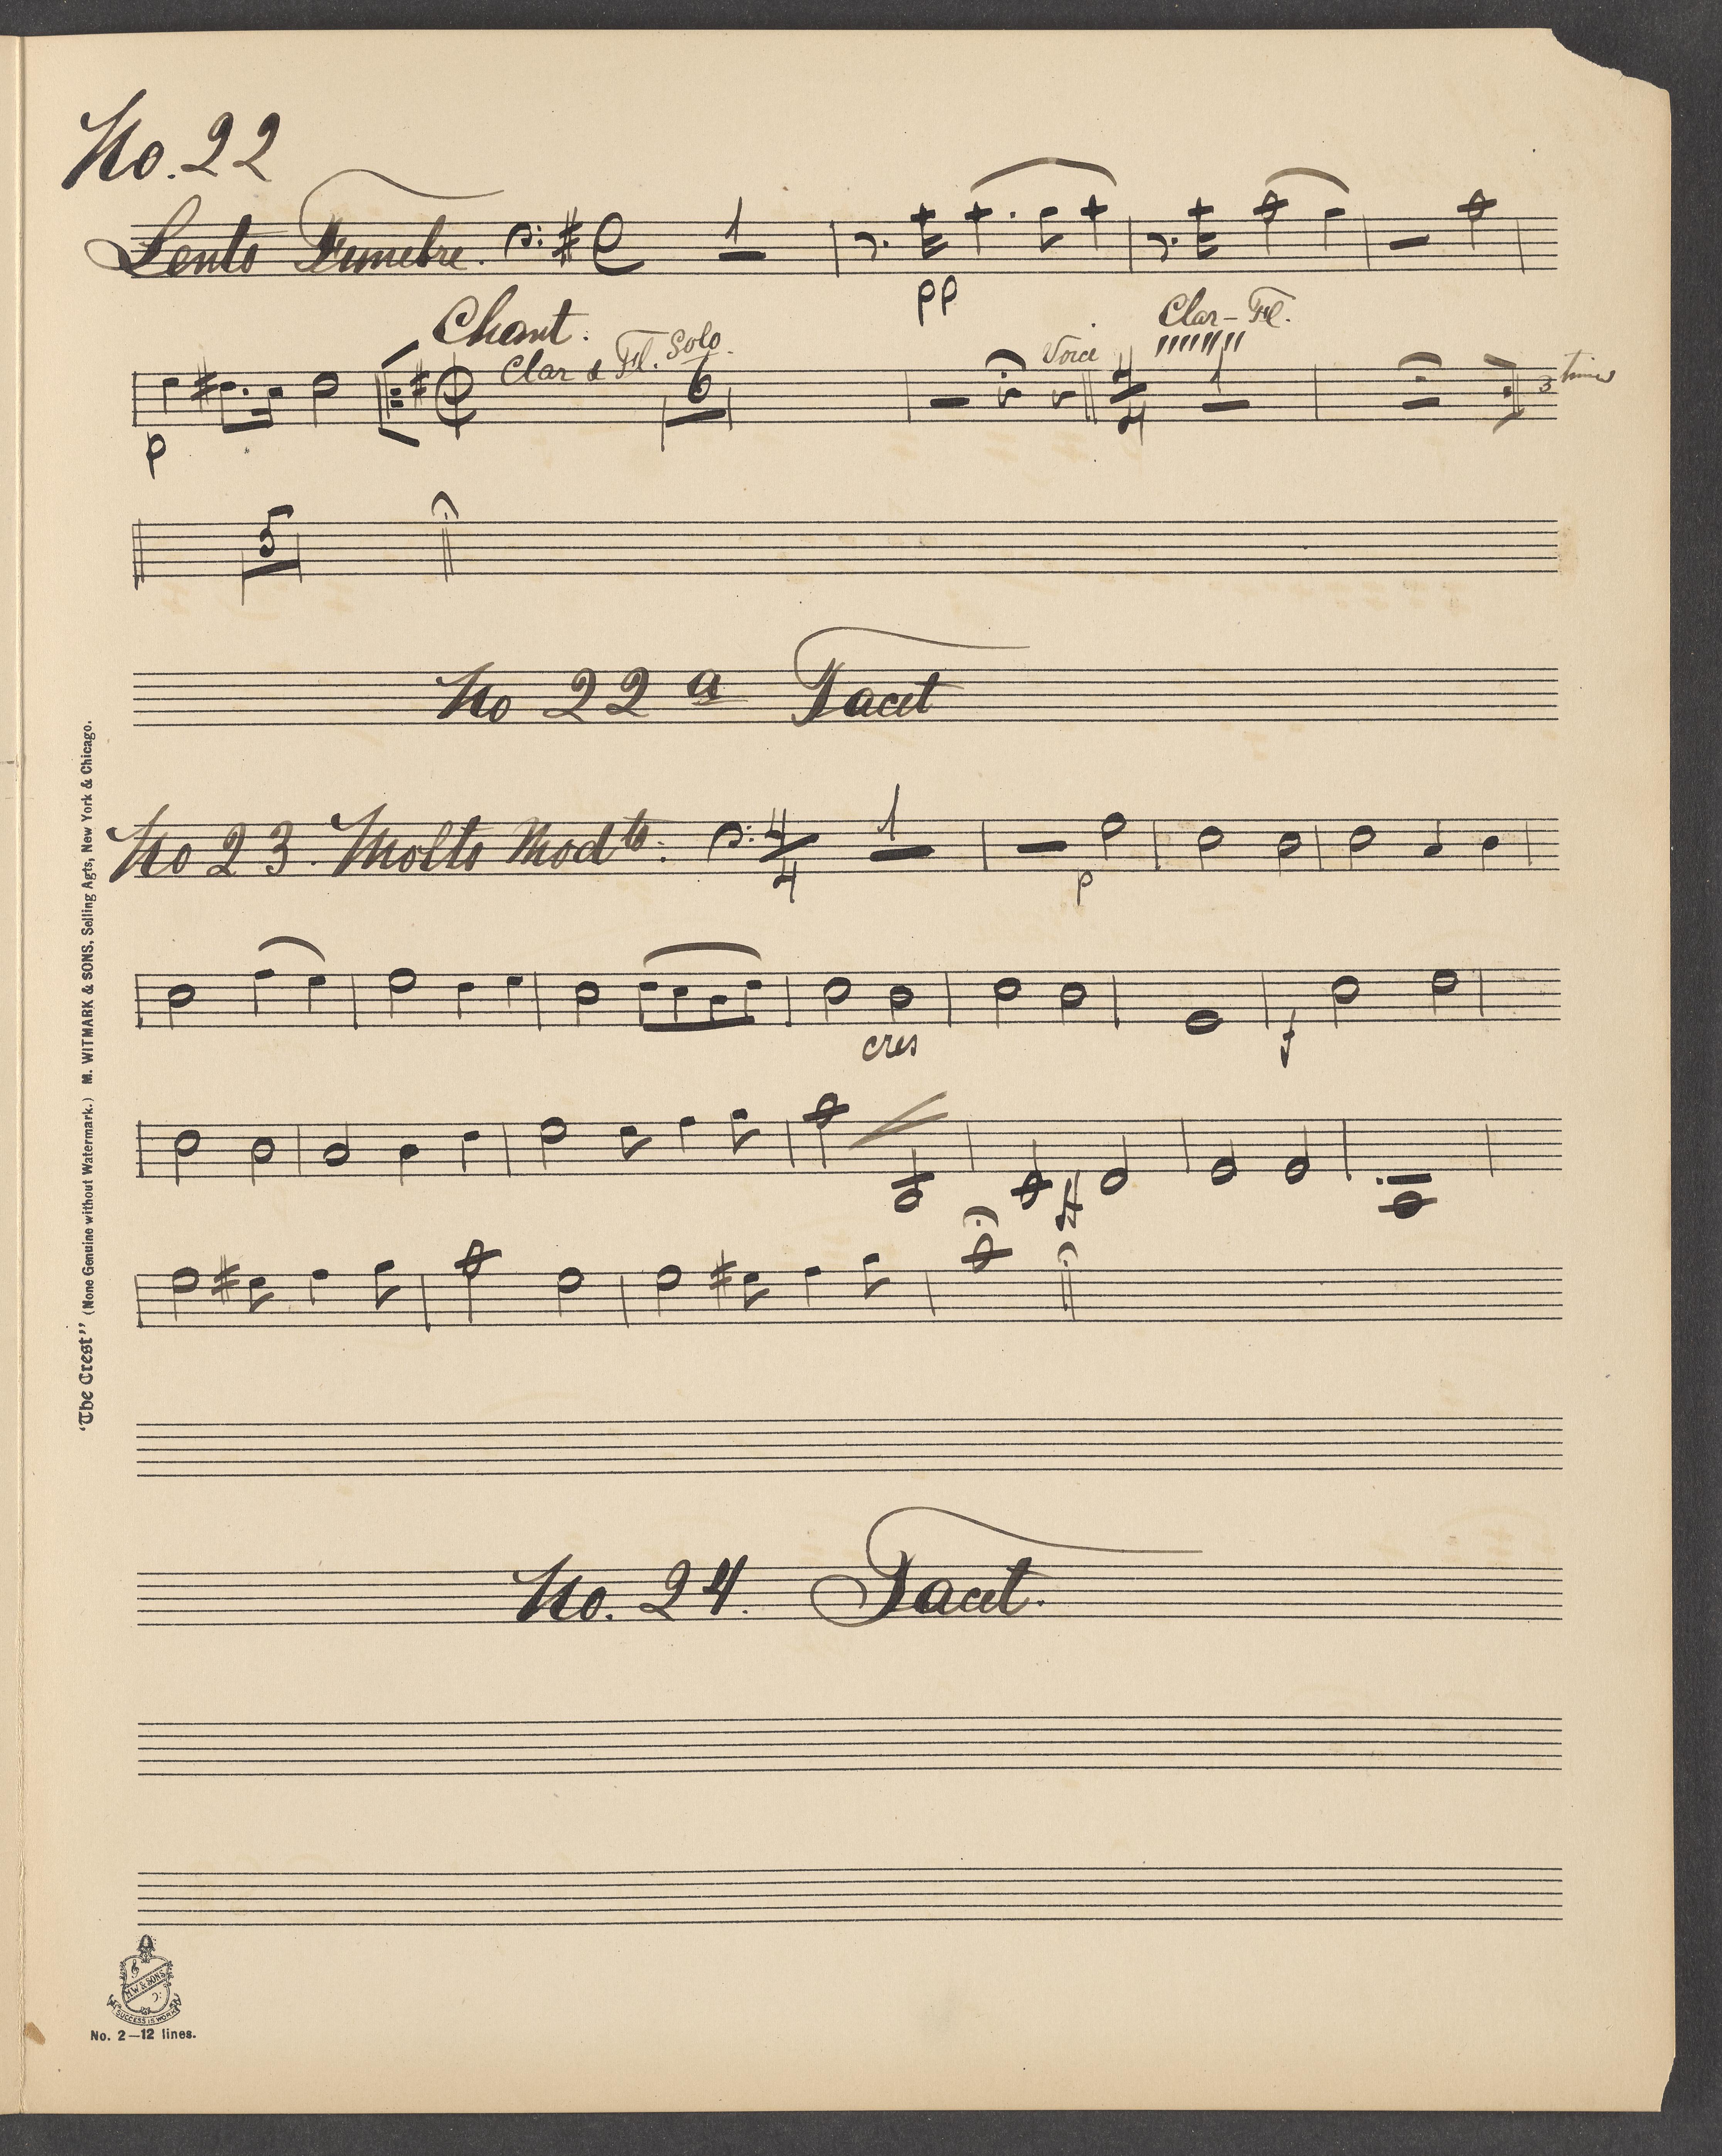 No. 22
Lento Funebre. 1
pp
Chant.
Clar & Fl. Solo.
6
Voice
Clar - Fl.
4
4
1
3 times
p
5
No 22 a Tacet
No 23. Molto Modto. 4
4
1
p
cres
f
No. 24. Tacet.
"The Crest" (None Genuine without Watermark.) M. WITMARK & SONS, Selling Agts, New York & Chicago.
M W & SONS
SUCCESS IS WORK
No. 2—12 lines.